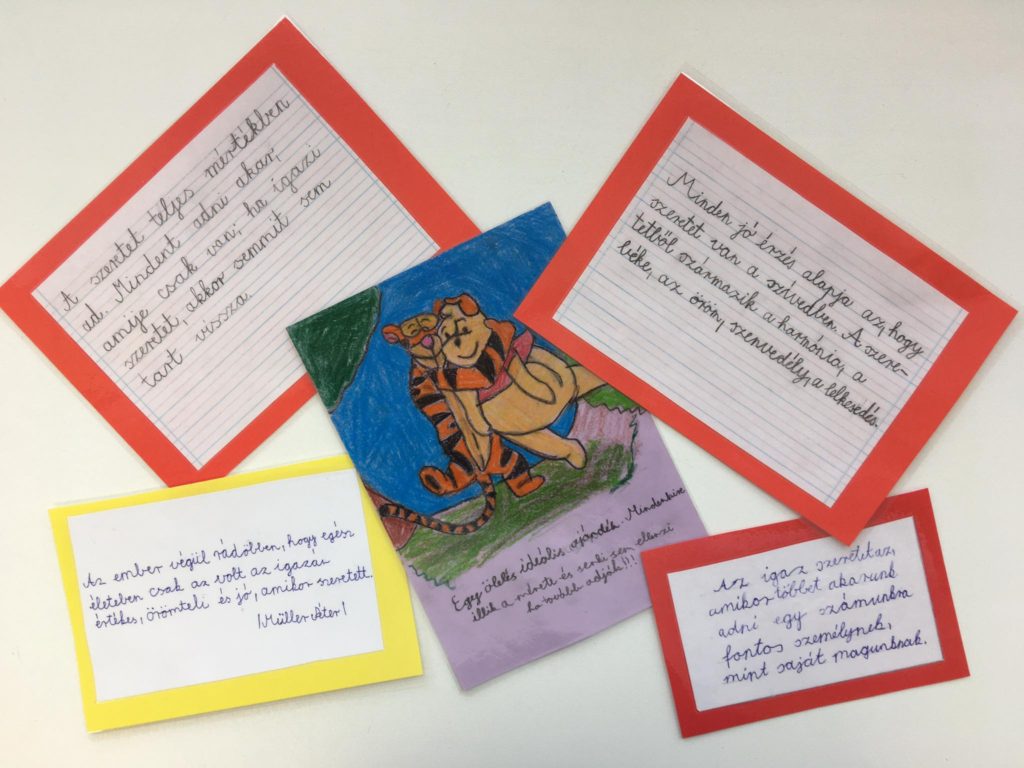 A szeretet teljes mértékben
ad. Mindent adni akar,
amije csak van; ha igazi
szeretet, akkor semmit sem
tart vissza.
Minden jó érzés alapja az, hogy
szeretet van a szívedben. A szere-
tetből származik a harmónia, a
béke, az öröm, szenvedély, a lelkesedés.
Egy ölelés ideális ajándék. Mindenkire
illik a mérete és senki sem ellenzi
ha tovább adják!!!
Az ember végül rádöbben, hogy egész
életeben csak az volt az igazán
értékes, örömteli és jó, amikor szeretett.
/Müller Péter/
Az igaz szeretet az,
amikor többet akarunk
adni egy számunkra
fontos személynek,
mint saját magunknak.